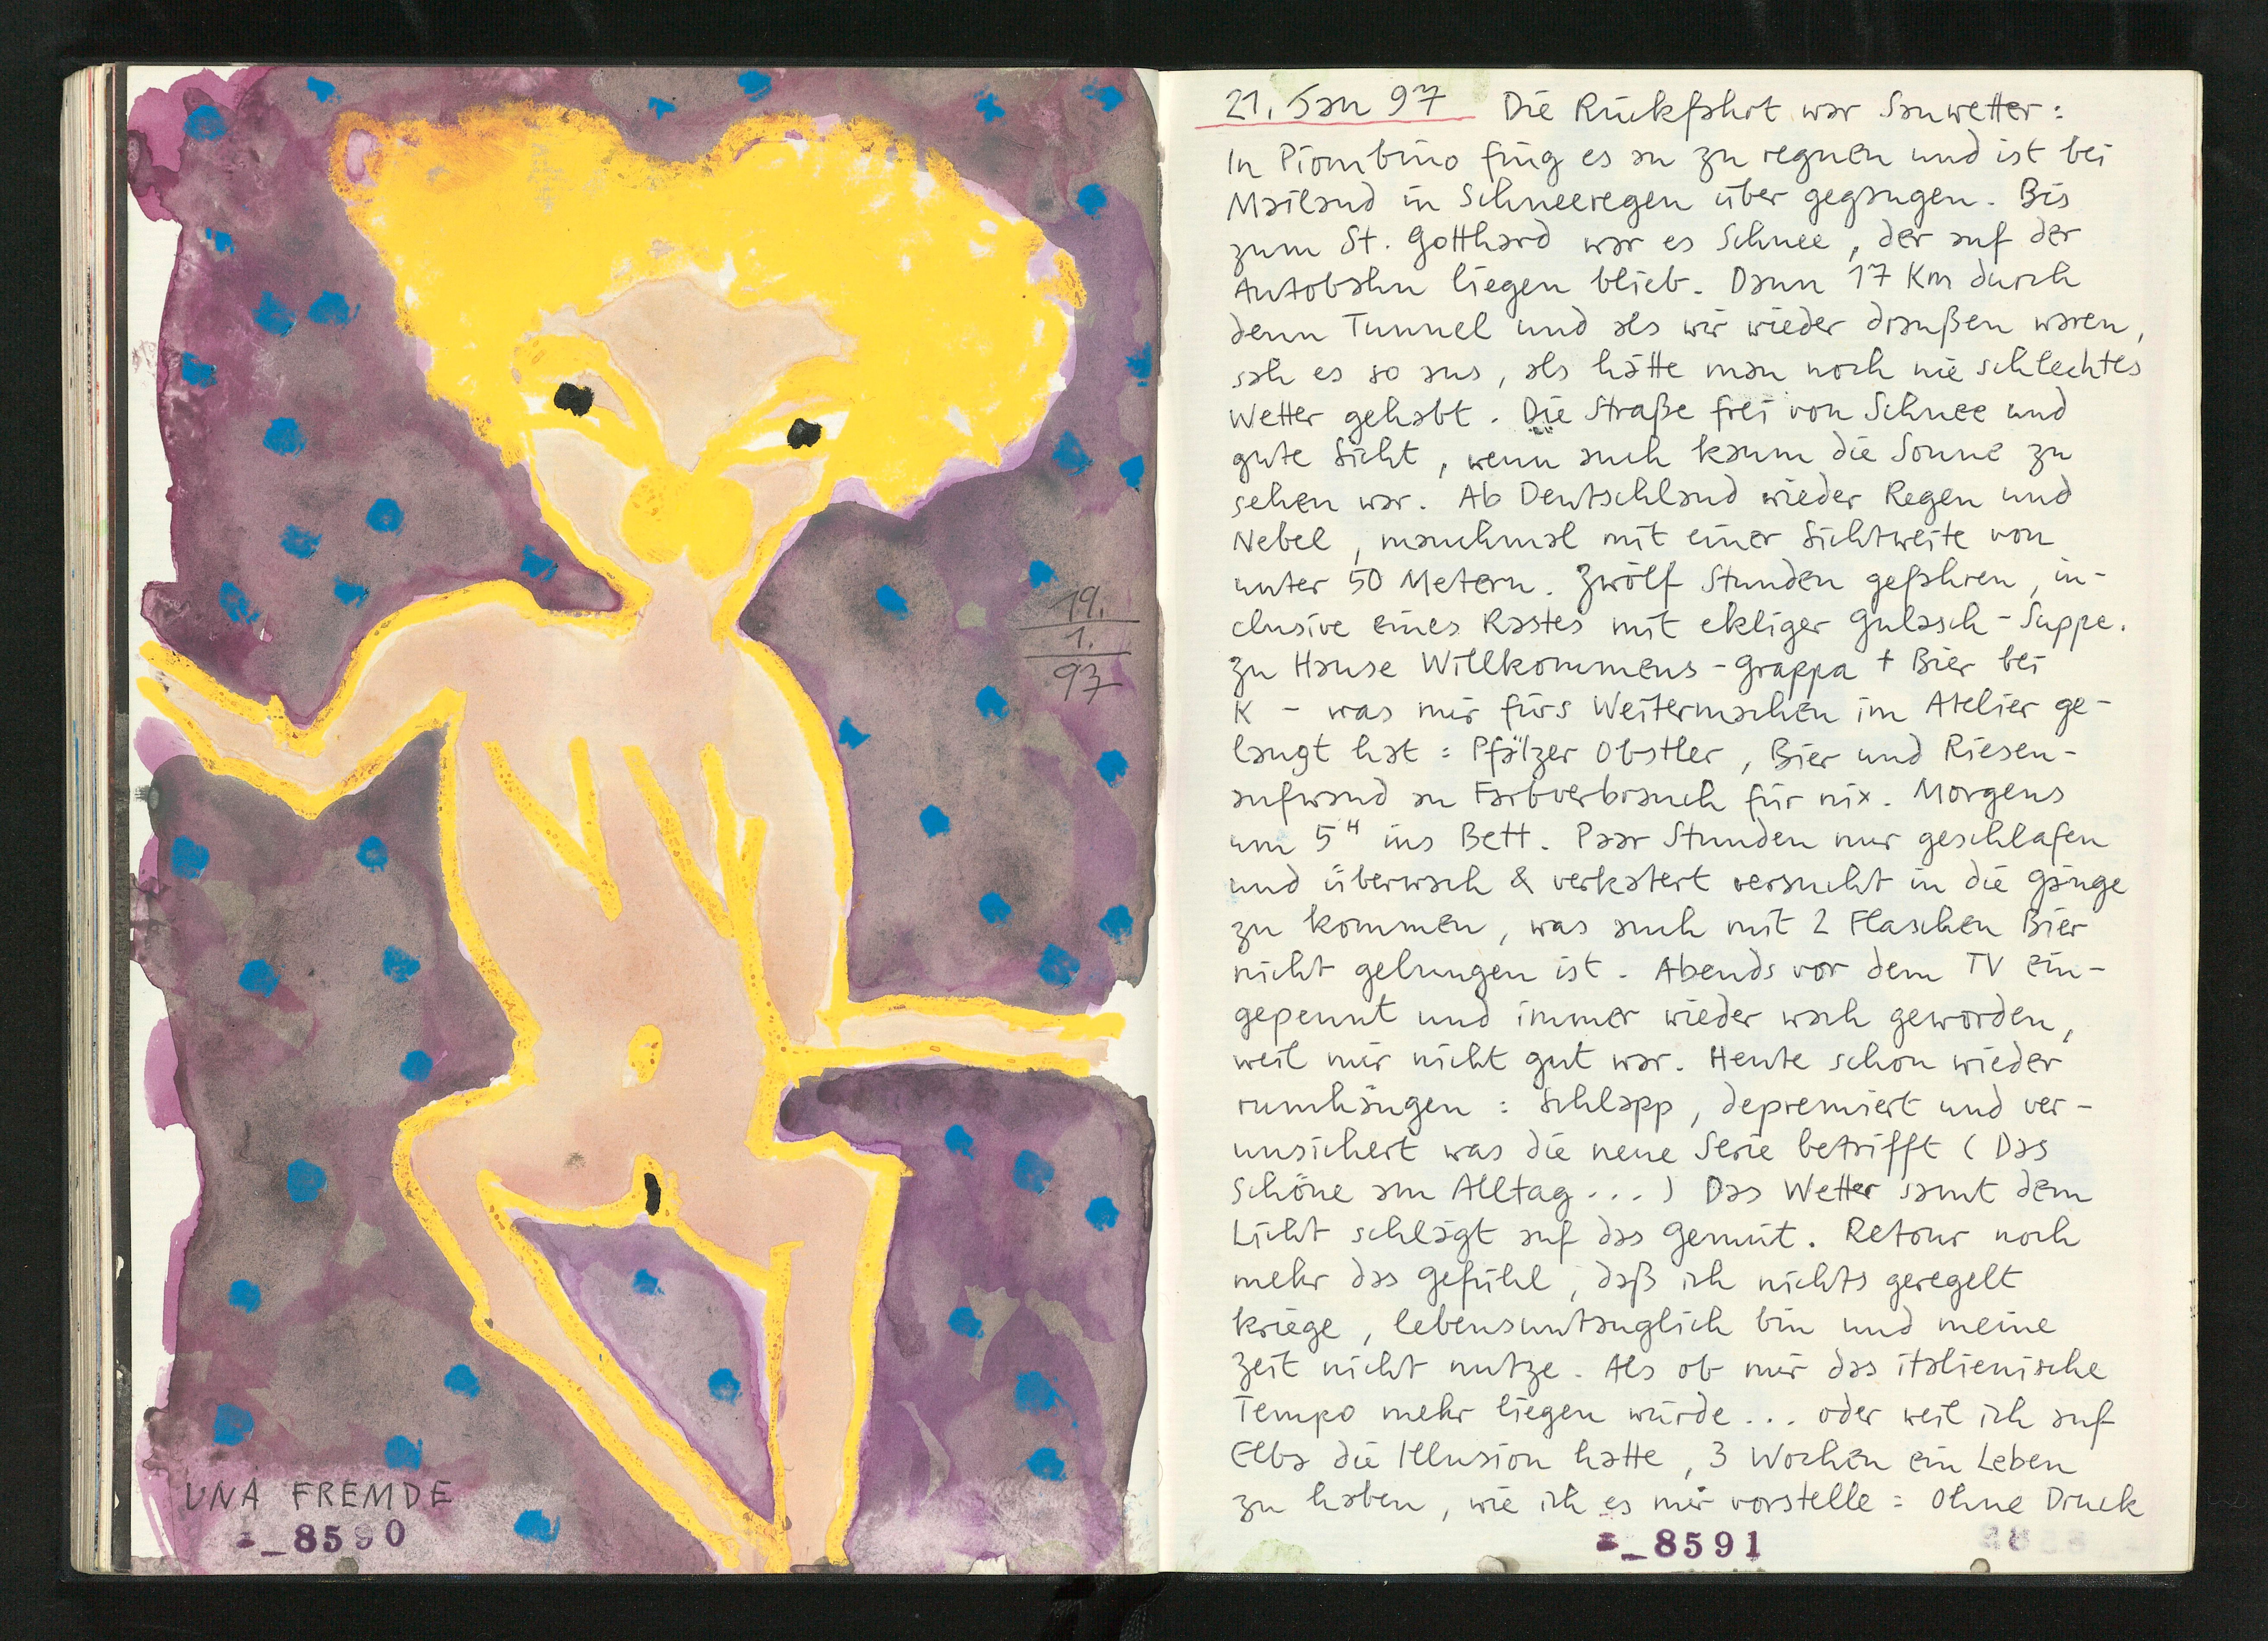 19.
1.
97
UNA FREMDE
_8590
21. Jan 97 Die Rückfahrt war Sauwetter:
In Piombino fing es an zu regnen und ist bei
Mailand in Schneeregen über gegangen. Bis
zum St. Gotthard war es Schnee, der auf der
Autobahn liegen blieb. Dann 17 Km durch
denn Tunnel und als wir wieder draußen waren,
sah es so aus, als hätte man noch nie schlechtes
Wetter gehabt. Die Straße frei von Schnee und
gute Sicht, wenn auch kaum die Sonne zu
sehen war. Ab Deutschland wieder Regen und
Nebel, manchmal mit einer Sichtweite von
unter 50 Metern. Zwölf Stunden gefahren, in-
clusive eines Rastes mit ekliger Gulasch-Suppe.
Zu Hause Willkommens-Grappa + Bier bei
K - was mir fürs Weitermachen im Atelier ge-
langt hat: Pfälzer Obstler, Bier und Riesen-
aufwand an Farbverbrauch für nix. Morgens
um 5 H ins Bett. Paar Stunden nur geschlafen
und überwach & verkatert versucht in die Gänge
zu kommen, was auch mit 2 Flaschen Bier
nicht gelungen ist. Abends vor dem TV ein-
gepennt und immer wieder wach geworden,
weil mir nicht gut war. Heute schon wieder
rumhängen: Schlapp, depremiert und ver-
unsichert was die neue Serie betrifft (Das
Schöne am Alltag...) Das Wetter samt dem
Licht schlägt auf das Gemüt. Retour noch
mehr das Gefühl, daß ich nichts geregelt
kriege, lebensuntauglich bin und meine
Zeit nicht nutze. Als ob mir das italienische
Tempo mehr liegen würde... oder weil ich auf
Elba die Illusion hatte, 3 Wochen ein Leben
zu haben, wie ich es mir vorstelle: Ohne Druck
_8591